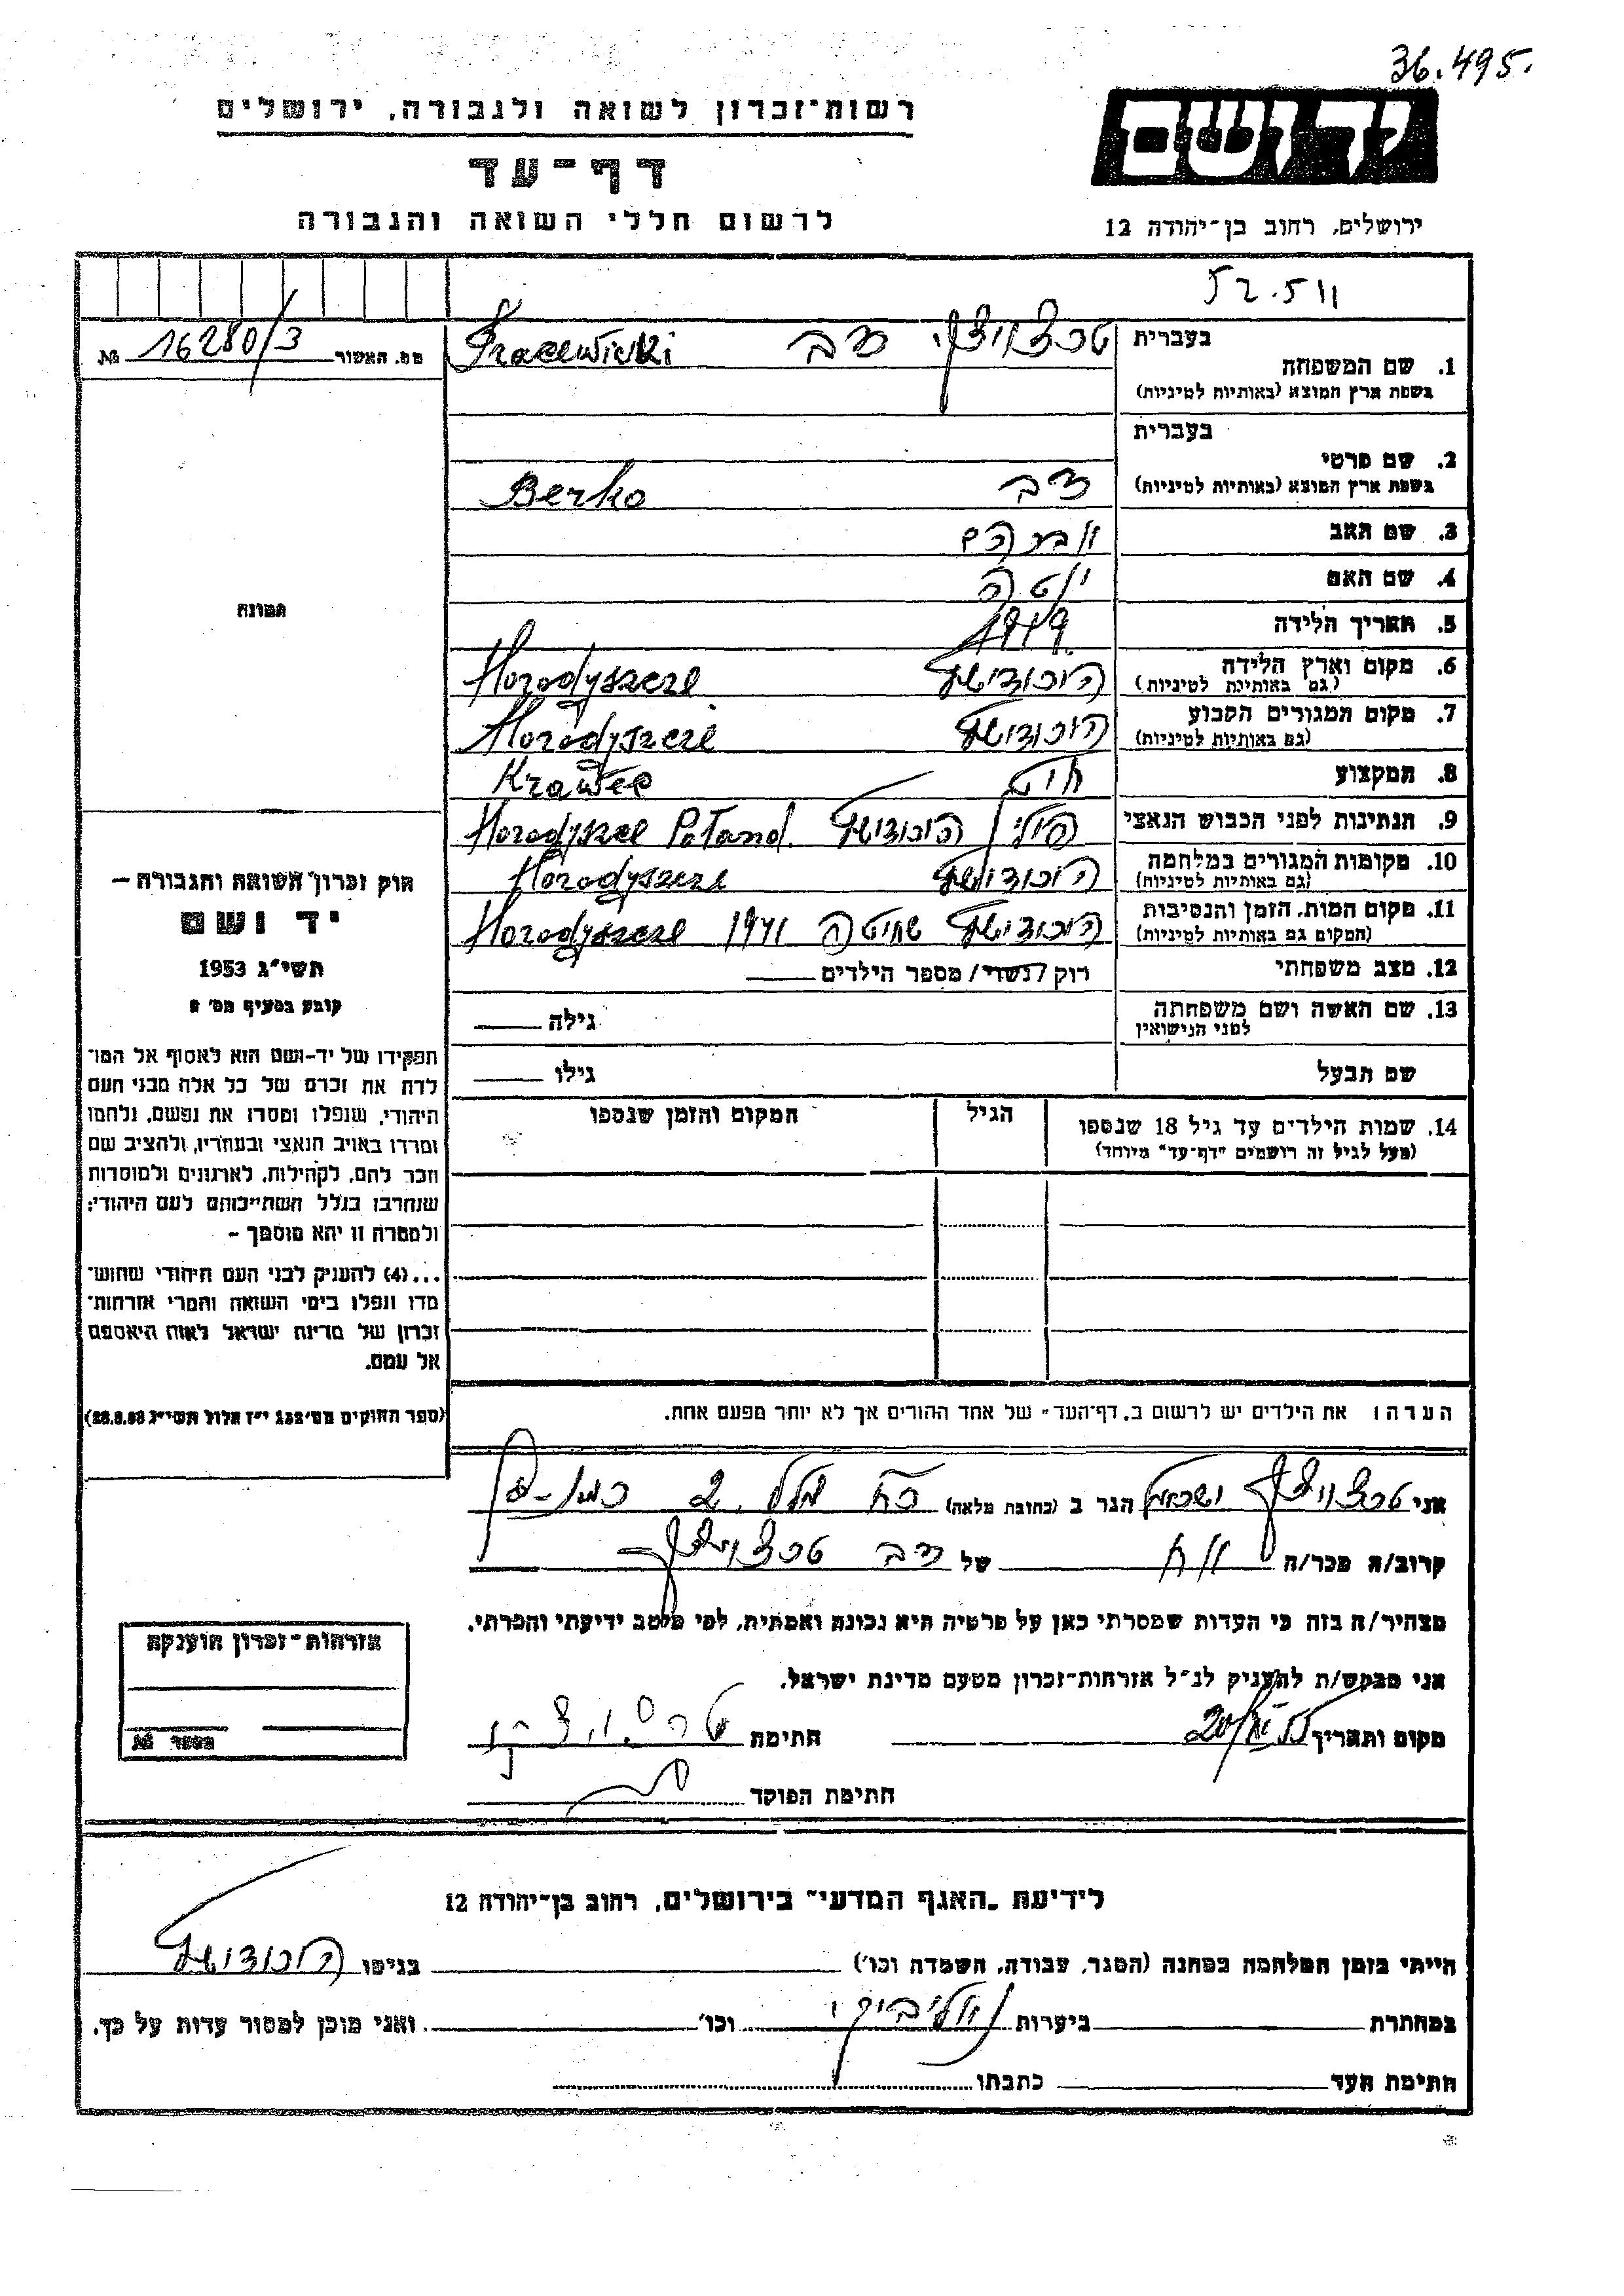 36.495.
רשות־זכרון לשואה ולגבורה, ירושלים
יד ושם
דף־עד
לרשום חללי השואה והגבורה
ירושלים, רחוב בן־יהודה 12
מס. האשור 16280/3 №
1. שם המשפחה בעברית
Tracewicki
בשפת ארץ המוצא (באותיות לטיניות)
בעברית
2. שם פרטי
בשפת ארץ המוצא (באותיות לטיניות)
דב Berko
3. שם האב אברהם
4. שם האם יטה
5. תאריך הלידה 1919
6. מקום וארץ הלידה הורודישץ Horodyszcze
(גם באותיות לטיניות)
7. מקום המגורים הקבוע הורודישץ Horodyszcze
(גם באותיות לטיניות)
8. המקצוע חיט Krawiec
9. הנתינות לפני הכבוש הנאצי פולין הורודישץ Horodyszcze Poland.
10. מקומות המגורים במלחמה הורודישץ Horodyszcze
(גם באותיות לטיניות)
11. מקום המות, הזמן והנסיבות הורודישץ שחיטה 1941 Horodyszcze
(המקום גם באותיות לטיניות)
12. מצב משפחתי רוק / נשוי / מספר הילדים
13. שם האשה ושם משפחתה גילה
לפני הנישואין
שם הבעל גילו
14. שמות הילדים עד גיל 18 שנספו הגיל המקום והזמן שנספו
(מעל לגיל זה רושמים "דף־עד" מיוחד)
תמונה
חוק זכרון השואה והגבורה —
יד ושם
תשי"ג 1953
קובע בסעיף מס' 2
תפקידו של יד-ושם הוא לאסוף אל המו־
לדת את זכרם של כל אלה מבני העם
היהודי, שנפלו ומסרו את נפשם, נלחמו
ומרדו באויב הנאצי ובעוזריו, ולהציב שם
וזכר להם, לקהילות, לארגונים ולמוסדות
שנחרבו בגלל השתייכותם לעם היהודי;
ולמטרה זו יהא מוסמך —
...(4) להעניק לבני העם היהודי שהוש־
מדו ונפלו בימי השואה והמרי אזרחות־
זכרון של מדינת ישראל לאות היאספם
אל עמם.
(ספר החוקים מס' 132 י"ז אלול תשי"ג 28.8.53)
הערה: את הילדים יש לרשום ב„דף־העד" של אחד ההורים אך לא יותר מפעם אחת.
אני ישראל הגר ב (כתובת מלאה)
קרוב/ה מכר/ה אח של דב
מצהיר/ה בזה כי העדות שמסרתי כאן על פרטיה היא נכונה ואמתית, לפי מיטב ידיעתי והכרתי.
אני מבקש/ת להעניק לנ"ל אזרחות־זכרון מטעם מדינת ישראל.
מקום ותאריך חתימת
חתימת הפוקד
אזרחות־זכרון הוענקה
מספר №
לידיעת „האגף המדעי" בירושלים, רחוב בן־יהודה 12
הייתי בזמן המלחמה במחנה (הסגר, עבודה, השמדה וכו') בגיטו הורודישץ
במחתרת ביערות וכו' ואני מוכן למסור עדות על כך.
חתימת העד כתבתו